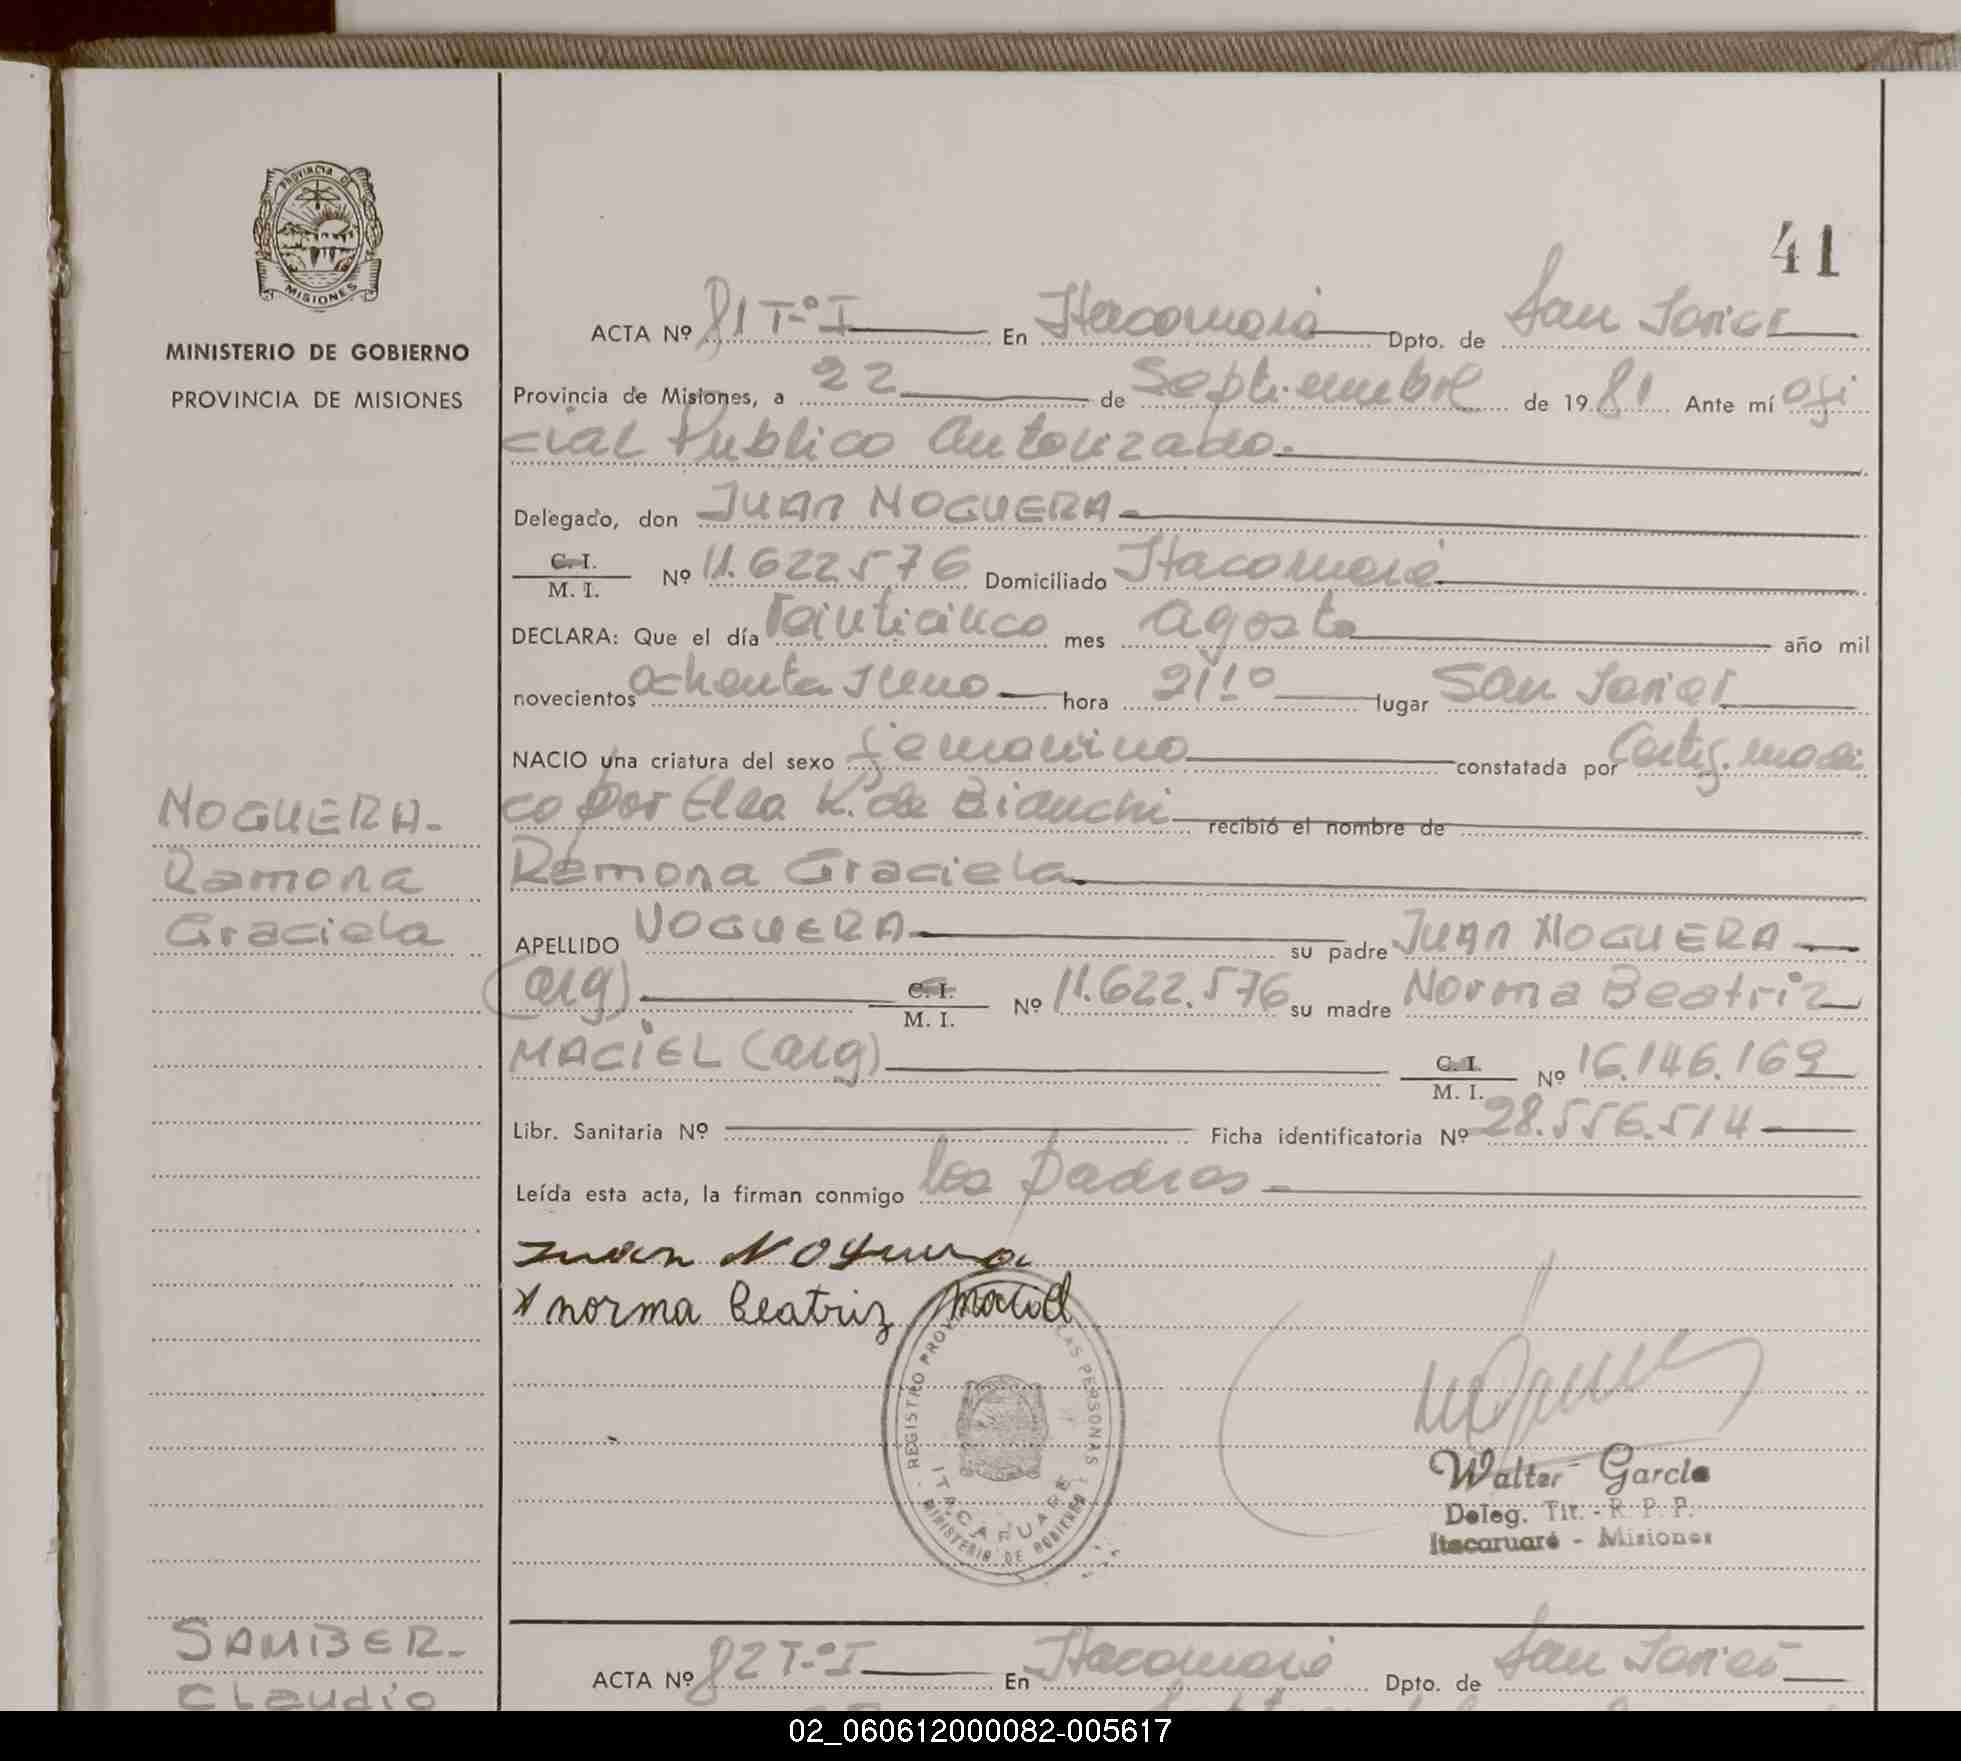 41
PROVINCIA DE
MISIONES
MINISTERIO DE GOBIERNO
PROVINCIA DE MISIONES
ACTA Nº 81 Tº I En Itacaruaré Dpto. de San Javier
Provincia de Misiones, a 22 de Septiembre de 1981 Ante mí ofi
cial Publico Autorizado.
Delegado, don JUAN NOGUERA
C. I.
M. I. Nº 11.622576 Domiciliado Itacaruaré
DECLARA: Que el día Veinticinco mes agosto año mil
novecientos ochenta y uno hora 21,10 lugar San Javier
NACIO una criatura del sexo femenino constatada por Certif. medi
co por Elea K. de Bianchi recibió el nombre de
NOGUERA.
Ramona
Graciela
Ramona Graciela
APELLIDO NOGUERA su padre JUAN NOGUERA
(arg) C. I.
M. I. Nº 11.622.576 su madre Norma Beatriz
MACIEL (arg) C. I.
M. I. Nº 16.146.169
Libr. Sanitaria Nº Ficha identificatoria Nº 28.556.514
Leída esta acta, la firman conmigo los padres
Juan Noguera
x norma Beatriz Maciel
REGISTRO PROV LAS PERSONAS
ITACARUARE
MINISTERIO DE GOBIERNO
Walter García
Deleg. Tit. - R. P. P.
Itacaruaré - Misiones
SAMBER.
Claudio
ACTA Nº 82 Tº I En Itacaruaré Dpto. de San Javier
02_060612000082-005617